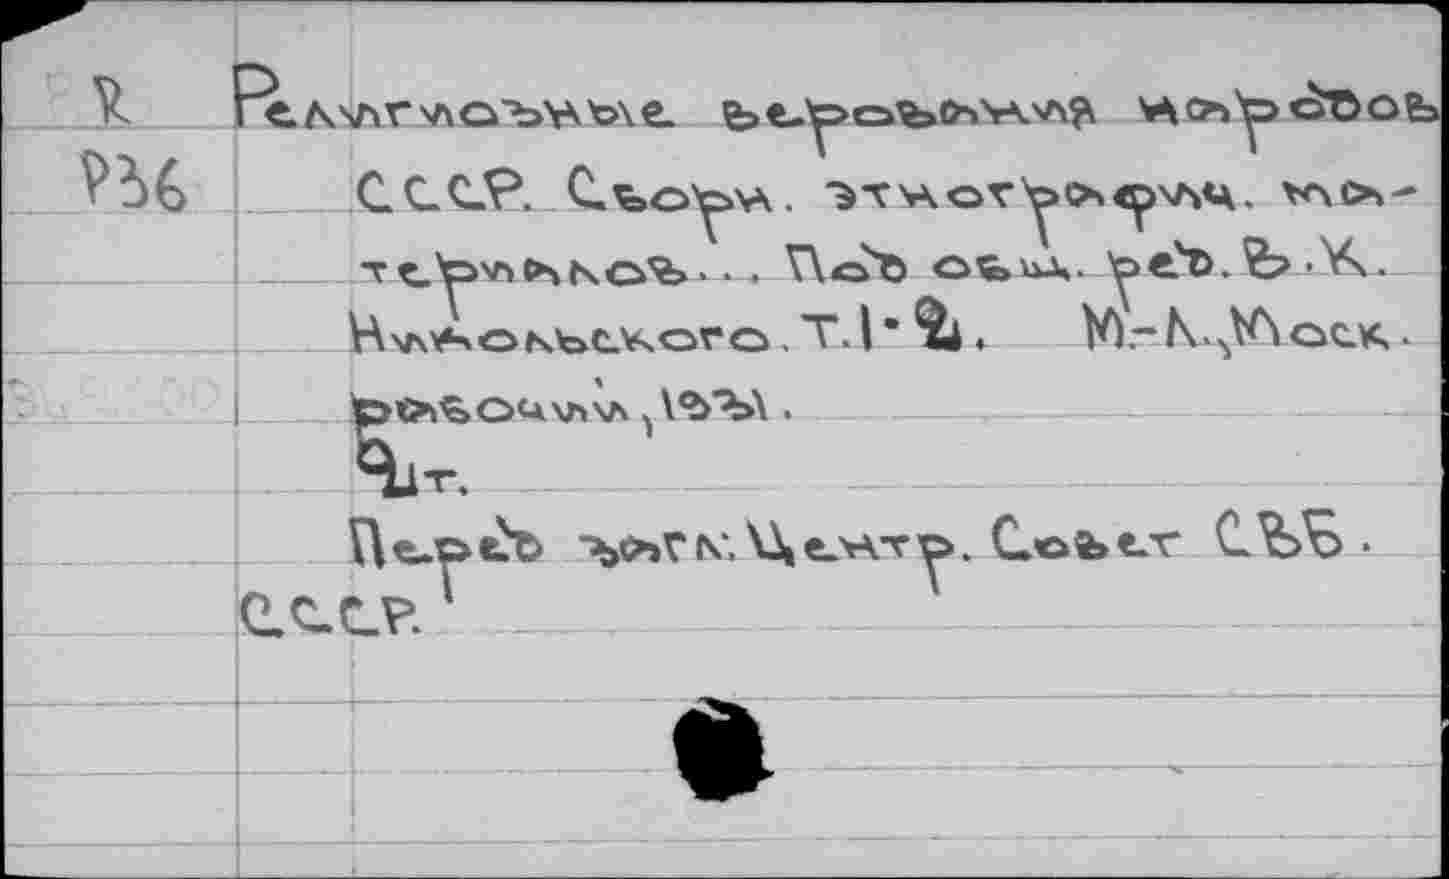 R Религиозные верования народов
Р36 СССР. Сборн. этнографич. ма-
териалов... Под общ. ред. В.К.
Никольского. Т.1-2. М.-Л., Моск.
рабочий, 1931.
2т.
Перед загл: Центр. Совет СВБ.
СССР.